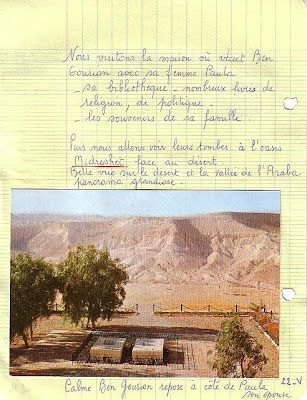 Nous visitons la maison où vécut Ben
Gourion avec sa femme Paula
- sa bibliothèque - nombreux livres de
religion, de politique -
- les souvenirs de sa famille
Puis nous allons voir leurs tombes à l'oasis
Midreshet, face au désert
Belle vue sur le désert et la vallée de l'Araba
panorama grandiose -
22-V
Calme Ben Gourion repose à côté de Paula
son épouse